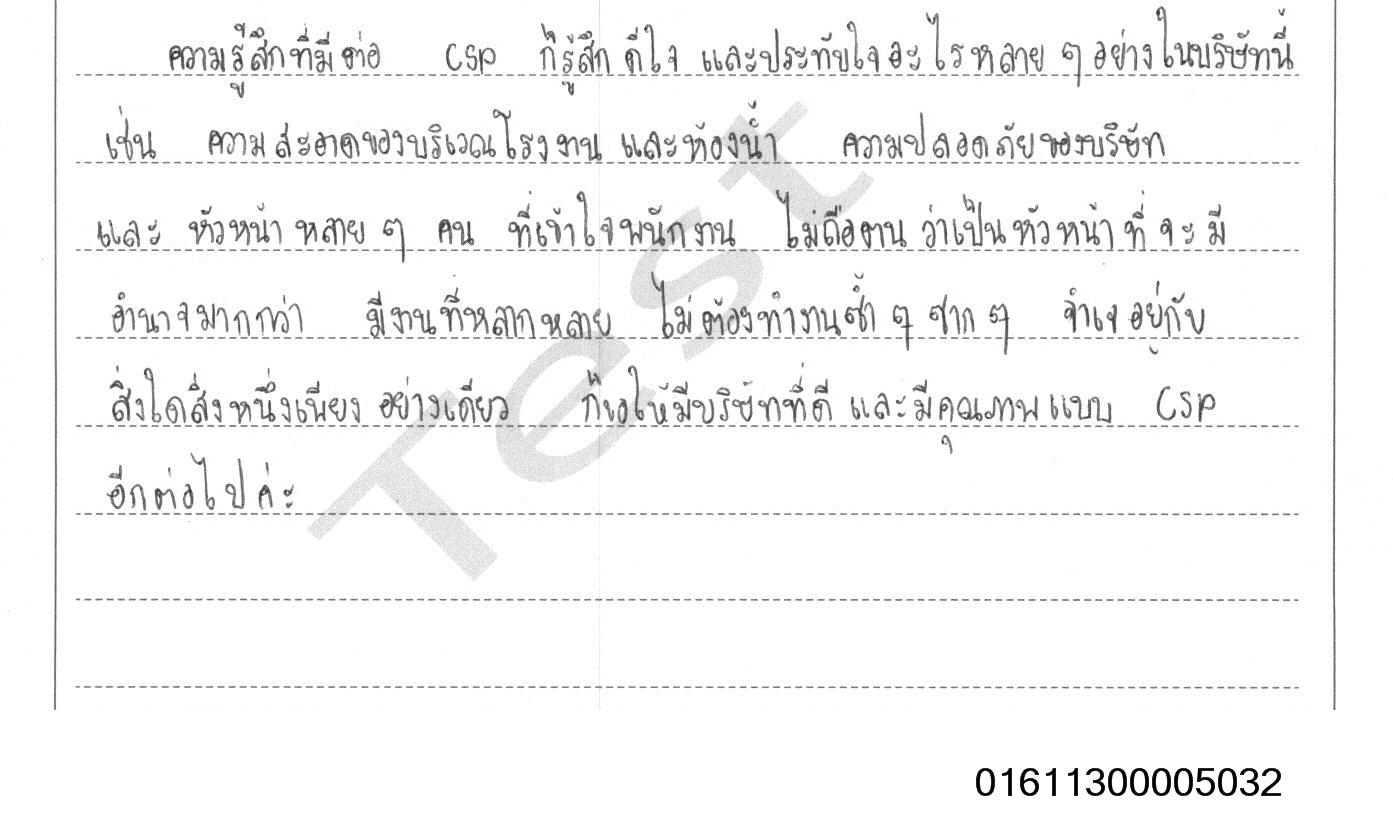 ความรู้สึกที่มีต่อ CSP ก็รู้สึก ดีใจ และประทับใจอะไรหลาย ๆ อย่างในบริษัทนี้
เช่น ความสะอาดของบริเวณโรงงาน และห้องน้ำ ความปลอดภัยของบริษัท
และ หัวหน้า หลาย ๆ คน ที่เข้าใจพนักงาน ไม่ถืองาน ว่าเป็นหัวหน้าที่จะมี
อำนาจมากกว่า มีงานที่หลากหลาย ไม่ต้องทำงานซ้ำ ๆ ซาก ๆ จำเจอยู่กับ
สิ่งใดสิ่งหนึ่งเพียงอย่างเดียว ก็ขอให้มีบริษัทที่ดี และมีคุณภาพแบบ CSP
อีกต่อไปค่ะ
Test
01611300005032